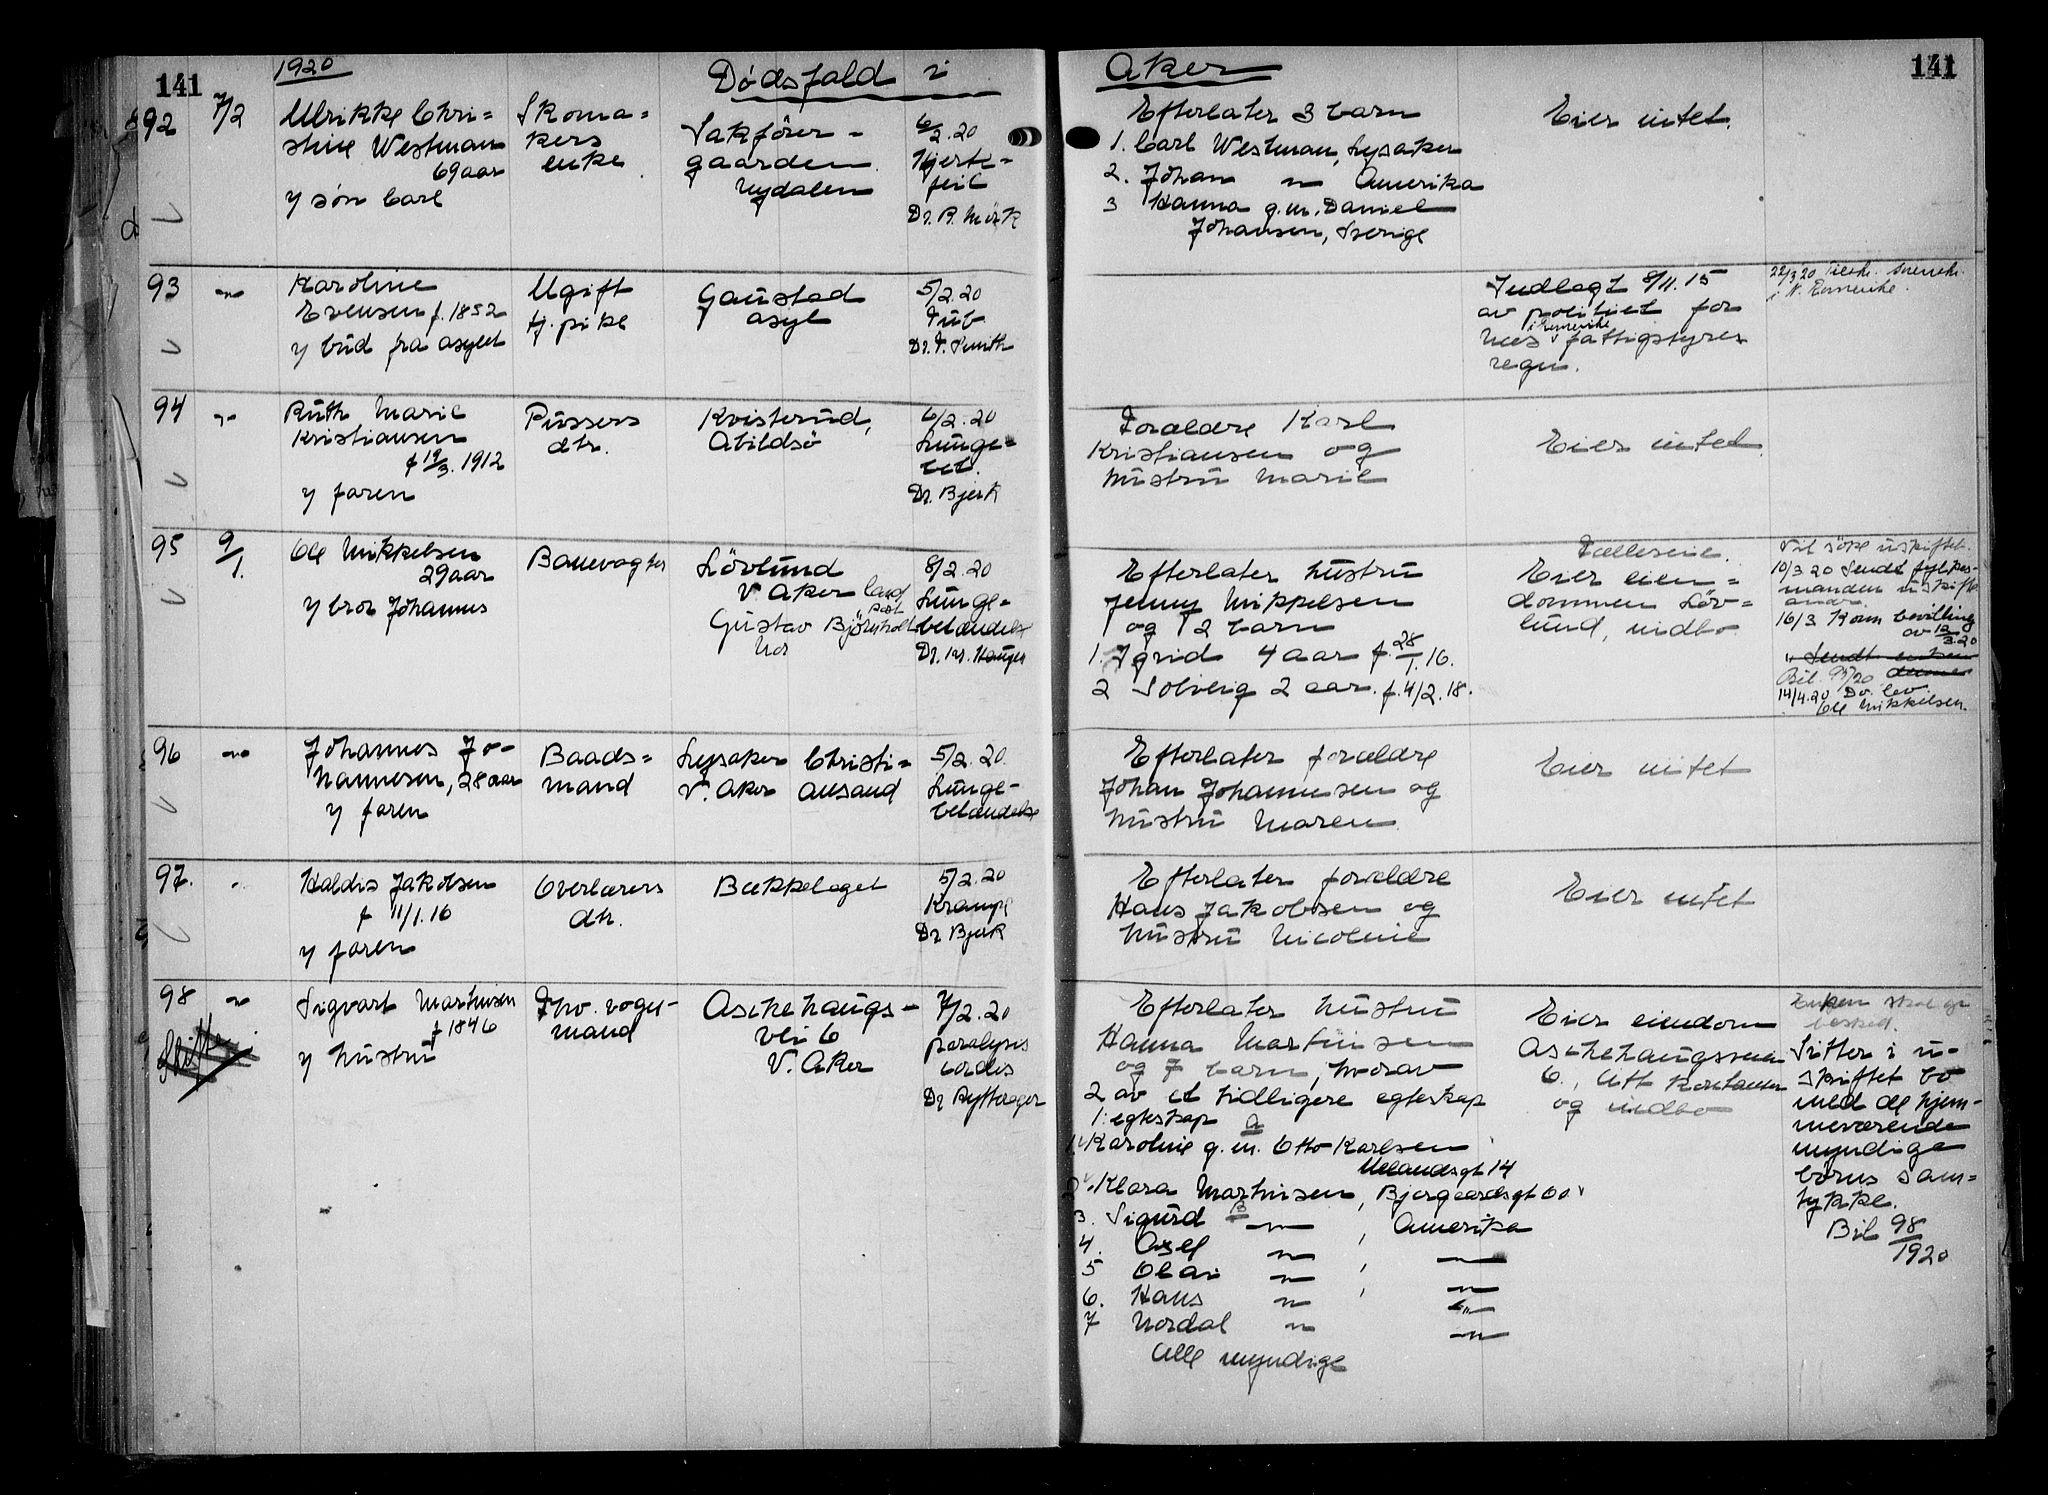 141
1920
Dødsfald i
Aker
141
92
7/2
Ulrikke Chri=
stine Westman
69 aar
y søn Carl
Skoma=
kers
enke
Sakfører-
gaarden
Nydalen
6/2.20
Hjerte-
feil
Dr. B. Mörk
Efterlater 3 barn
1. Carl Westman, Lysaker
2. Johan " Amerika
3 Hanna g.m. Daniel
Johansen, Sverige
Eier intet.
93
"
Karoline
Evensen f. 1852
y bud fra asylet
Ugift
tj. pike
Gaustad
asyl
5/2.20
Tub
Dr. F. Smith
Indlagt 8/11.15
av politiet for
i Romerike
Nes fattigstyres
regn.
22/3 20
i N. Romerike.
94
"
Ruth Marie
Kristiansen
f 19/3. 1912
y faren
Pussers
dtr.
Kvisterud,
Abildsö
6/2.20
Lunge-
bet.
Dr. Bjerk
Forældre Karl
Kristiansen og
hustru Marie
Eier intet
95
9/1.
Ole Mikkelsen
29 aar
y bror Johannes
Banevogter
Lövlund
V. Aker
Gustav Björnholt
8/2.20
Lunge-
betændelse
Dr. Kr. Hauger
Efterlater hustru
Jenny Mikkelsen
og 2 barn
1. Igrid 4 aar f. 28/1.16.
2 Solveig 2 aar. f. 4/2.18.
Fælleseie.
Eier eien=
dommen Löv=
lund, indbo
Vil söke uskiftet.
10/3 20 Sendt fylkes-
manden uskifte
andr.
16/3 Kom bevilling
av 12/3.20
Bil. 95/20
14/4.20
Ole Mikkelsen.
96
"
Johannes Jo-
hannesen, 28 aar
y faren
Baads=
mand
Lysaker Christi=
V. Aker ansand
5/2.20.
Lunge-
betændelse
Efterlater forældre
Johan Johannesen og
hustru Maren
Eier intet
97.
"
Haldis Jakobsen
f 11/1.16
y faren
Overlærers
dtr.
Bækkelaget
5/2.20
Krampe
Dr Bjerk
Efterlater forældre
Hans Jakobsen og
hustru Nicoline
Eier intet
98
"
Sigvart Martinsen
f 1846
y hustru
Fhv. vogn-
mand
Aschehaugs-
vei 6
V. Aker
7/2.20
paralysis
cordis
Dr Rytterager
Efterlater hustru
Hanna Martinsen
og 7 barn, hvorav
2 av et tidligere egteskap
1: egteskap A
1. Karoline g.m. Otto Karlsen
Uelandsgt 14
2. Klara Martinsen, Bjergaardsgt 60
B
3. Sigurd " , Amerika
4. Axel " , "
5 Olav " , "
6. Hans " "
7 Nordal " "
Alle myndige
Eier eiendom
Aschehaugsveien
6., litt kontanter
og indbo
Enken skal gi
besked.
Sitter i u-
skiftet bo
med de hjem-
meværende
myndige
børns sam=
tykke.
Bil 98/1920